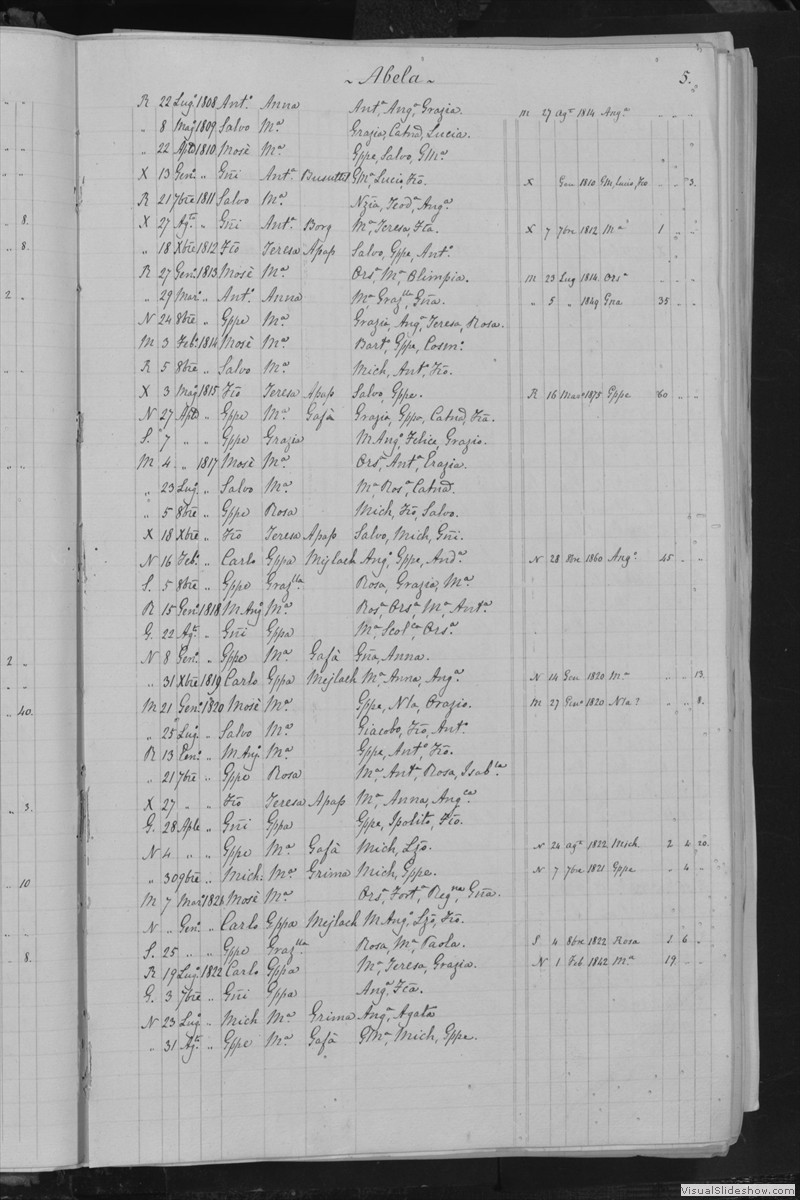 ~ Abela ~ 5.
R 22 Lug.º 1808 Ant.º Anna Ant.ª Ang.ª Grazia. M 27 Ag.º 1814 Ang.ª " " "
" 8 Mag.º 1809 Salvo M.ª Grazia, Catnã, Lucia.
" 22 Aple 1810 Mosè M.ª Gppe, Salvo, GM.ª
X 13 Gen.º " Gñi Ant.ª Busuttil GM.ª Lucio, Frõ. X Gen 1810 GM, Lucio, Frõ " " 3.
R 21 7bre 1811 Salvo M.ª Nzia, Teod.ª Ang.ª
8. X 27 Ag.º " Gñi Ant.ª Borg M.ª Teresa, Fcã. X 7 7bre 1812 M.ª 1 " "
8. " 18 Xbre 1812 Frõ Teresa Apap Salvo, Gppe, Ant.º
R 27 Gen.º 1813 Mosè M.ª Ors.ª M.ª Olimpia. M 23 Lug 1814 Ors.ª " " "
2 " 29 Mar.º " Ant.º Anna M.ª Graz.lla Gña. " 5 " 1849 Gña 35 " "
N 24 8bre " Gppe M.ª Grazia, Ang.ª Teresa, Rosa.
M 3 Feb.º 1814 Mosè M.ª Bart.º Gppe, Cosm.º
R 5 8bre " Salvo M.ª Mich, Ant.º Frõ.
X 3 Mag.º 1815 Frõ Teresa Apap Salvo, Gppe. R 16 Mar.º 1875 Gppe 60 " "
N 27 Aple " Gppe M.ª Gafà Grazia, Gppa, Catnã, Fcã.
S. 7 " " Gppe Grazia M Ang.º Felice, Grazio.
M 4 " 1817 Mosè M.ª Ors.ª Ant.ª Grazia.
" 23 Lug.º " Salvo M.ª M.ª Ros.ª Catnã.
" 5 8bre " Gppe Rosa Mich, Frõ, Salvo.
X 18 Xbre " Frõ Teresa Apap Salvo, Mich, Gñi.
N 16 Feb.º " Carlo Gppa Mejlach Ang.º Gppe, And.ª N 28 8bre 1860 Ang.º 45 " "
S. 5 8bre " Gppe Graz.lla Rosa, Grazia, M.ª
R 15 Gen.º 1818 M Ang.º M.ª Ros.ª Ors.ª M.ª Ant.ª
G. 22 Ag.º " Gñi Gppa M.ª Scol.ca Ors.ª
2 N 8 Gen.º " Gppe M.ª Gafà Gña, Anna.
" 31 Xbre 1819 Carlo Gppa Mejlach M.ª Anna, Ang.ª N 14 Gen 1820 M.ª " " 13.
40. M 21 Gen.º 1820 Mosè M.ª Gppe, N/a, Orazio. M 27 Gen.º 1820 N/a? " " 8.
" 25 Lug.º " Salvo M.ª Giacobo, Frõ, Ant.º
R 13 Gen.º " M Ang.º M.ª Gppe, Ant.º Frõ.
" 21 7bre " Gppe Rosa M.ª Ant.ª Rosa, Isab.la
3. X 27 " " Frõ Teresa Apap M.ª Anna, Ang.ca
G. 28 Aple " Gñi Gppa Gppe, Ipolito, Frõ.
N 4 " " Gppe M.ª Gafà Mich, Lzõ. N 24 Ag.º 1822 Mich 2 4 20.
10 " 30 9bre " Mich: M.ª Grima Mich, Gppe. N 7 7bre 1821 Gppe " 4 "
M 7 Mar.º 1821 Mosè M.ª Ors.ª Fort.ª Reg.na Gña.
N " Gen.º " Carlo Gppa Mejlach M Ang.º Lzõ, Frõ.
8. S. 25 " " Gppe Graz.lla Rosa, M.ª Paola. S 4 8bre 1822 Rosa 1 6 "
R 19 Lug.º 1822 Carlo Gppa M.ª Teresa, Grazia. N 1 Feb 1842 M.ª 19 " "
G. 3 7bre " Gñi Gppa Ang.ª Fcã.
N 23 Lug.º " Mich M.ª Grima Ang.ª Agata
" 31 Ag.º " Gppe M.ª Gafà GM.ª Mich, Gppe.
VisualSlideshow.com